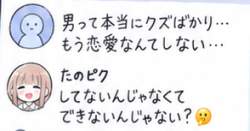 男って本当にクズばかり…
もう恋愛なんてしない…
たのピク
してないんじゃなくて
できないんじゃない？🤫